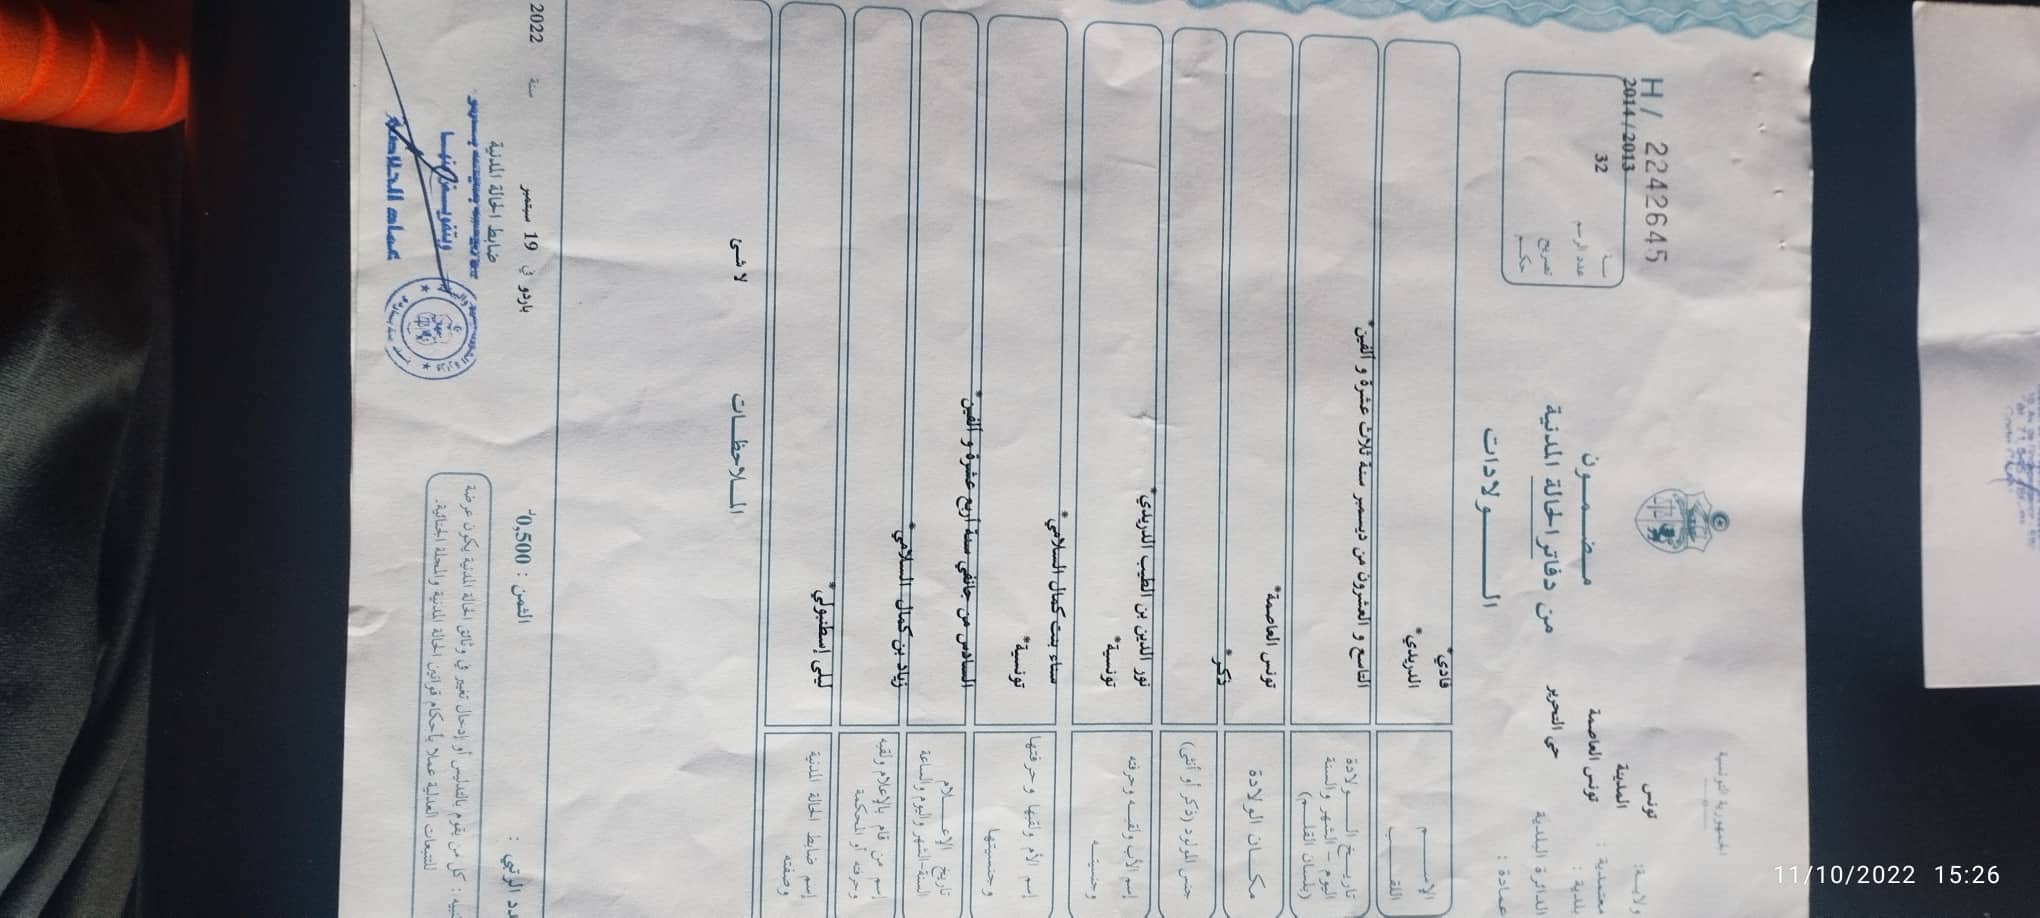 الجمهورية التونسية
ولايــة: تونس
معتمدية : المدينة
بلدية : تونس العاصمة
الدائرة البلدية حي التحرير
عمادة :
مـضـمـــون
من دفاتر الحالة المدنية
الـــــولادات
H/ 2242645
سنة 2014/2013
عدد الرسم 32
تصريح
حكم
الإســـــم فادي*
اللقـــب الدريدي*
تاريـــخ الــــولادة
اليوم - الشهر والسنة
(بلسان القلـم)
التاسع و العشرون من ديسمبر سنة ثلاث عشرة و ألفين*
مكــان الولادة تونس العاصمة*
جنس المولود (ذكر أو أنثى) ذكر*
إسم الأب ولقبــه وحرفته
وجنسيتــه
نور الدين بن الطيب الدريدي*
تونسية*
إسم الأم ولقبها وحرفتها
وجنسيتها
سناء بنت كمال السلامي*
تونسية*
تاريخ الإعــــلام
السنة-الشهر واليوم والساعة
السادس من جانفي سنة أربع عشرة و ألفين*
إسم من قام بالإعلام ولقبه
وحرفته أو المحكمة
زياد بن كمال السلامي*
إسم ضابط الحالة المدنية
وصفته
ليلى إسطنبولي*
المــلاحظــات
لا شئ
باردو في 19 سبتمبر سنة 2022
ضابط الحالة المدنية
وبتفويض منها
الثمن : 0,500
دد الرتبي :
بيه: كل من يقوم بالتدليس أو إدخال تغيير في وثائق الحالة المدنية يكون عرضة
للتتبعات العدلية عملا بأحكام قوانين الحالة المدنية والمجلة الجنائية.
11/10/2022 15:26